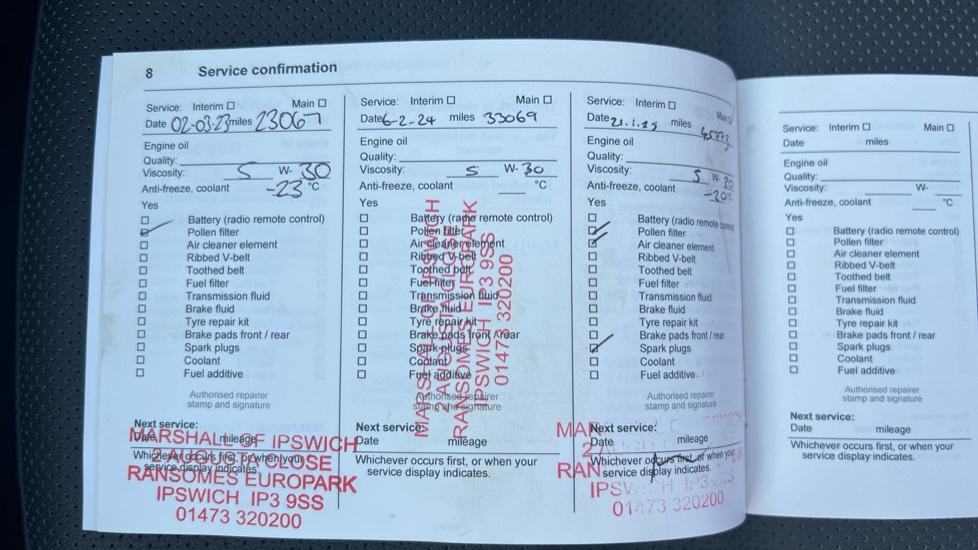 8 Service confirmation
Service: Interim ☐ Main ☐
Date 02-03-23 miles 23067
Engine oil
Quality:
Viscosity: 5 W- 30
Anti-freeze, coolant -23 °C
Yes
Battery (radio remote control)
Pollen filter
Air cleaner element
Ribbed V-belt
Toothed belt
Fuel filter
Transmission fluid
Brake fluid
Tyre repair kit
Brake pads front / rear
Spark plugs
Coolant
Fuel additive
Authorised repairer
stamp and signature
Next service:
Date mileage
Whichever occurs first, or when your
service display indicates.
MARSHALL OF IPSWICH
2 AUGUSTA CLOSE
RANSOMES EUROPARK
IPSWICH IP3 9SS
01473 320200
Service: Interim ☐ Main ☐
Date 6-2-24 miles 33069
Engine oil
Quality:
Viscosity: 5 W- 30
Anti-freeze, coolant °C
Yes
Battery (radio remote control)
Pollen filter
Air cleaner element
Ribbed V-belt
Toothed belt
Fuel filter
Transmission fluid
Brake fluid
Tyre repair kit
Brake pads front / rear
Spark plugs
Coolant
Fuel additive
Authorised repairer
stamp and signature
MARSHALL OF IPSWICH
2 AUGUSTA CLOSE
RANSOMES EUROPARK
IPSWICH IP3 9SS
01473 320200
Next service:
Date mileage
Whichever occurs first, or when your
service display indicates.
Service: Interim ☐ Main ☐
Date 21.1.25 miles
Engine oil
Quality:
Viscosity: 5 W- 30
Anti-freeze, coolant -30°C
Yes
Battery (radio remote control)
Pollen filter
Air cleaner element
Ribbed V-belt
Toothed belt
Fuel filter
Transmission fluid
Brake fluid
Tyre repair kit
Brake pads front / rear
Spark plugs
Coolant
Fuel additive
Authorised repairer
stamp and signature
Next service:
Date mileage
Whichever occurs first, or when your
service display indicates.
MAR
2
RAN
IPSWICH IP3 9SS
01473 320200
Service: Interim ☐ Main ☐
Date miles
Engine oil
Quality:
Viscosity: W-
Anti-freeze, coolant °C
Yes
Battery (radio remote control)
Pollen filter
Air cleaner element
Ribbed V-belt
Toothed belt
Fuel filter
Transmission fluid
Brake fluid
Tyre repair kit
Brake pads front / rear
Spark plugs
Coolant
Fuel additive
Authorised repairer
stamp and signature
Next service:
Date mileage
Whichever occurs first, or when your
service display indicates.